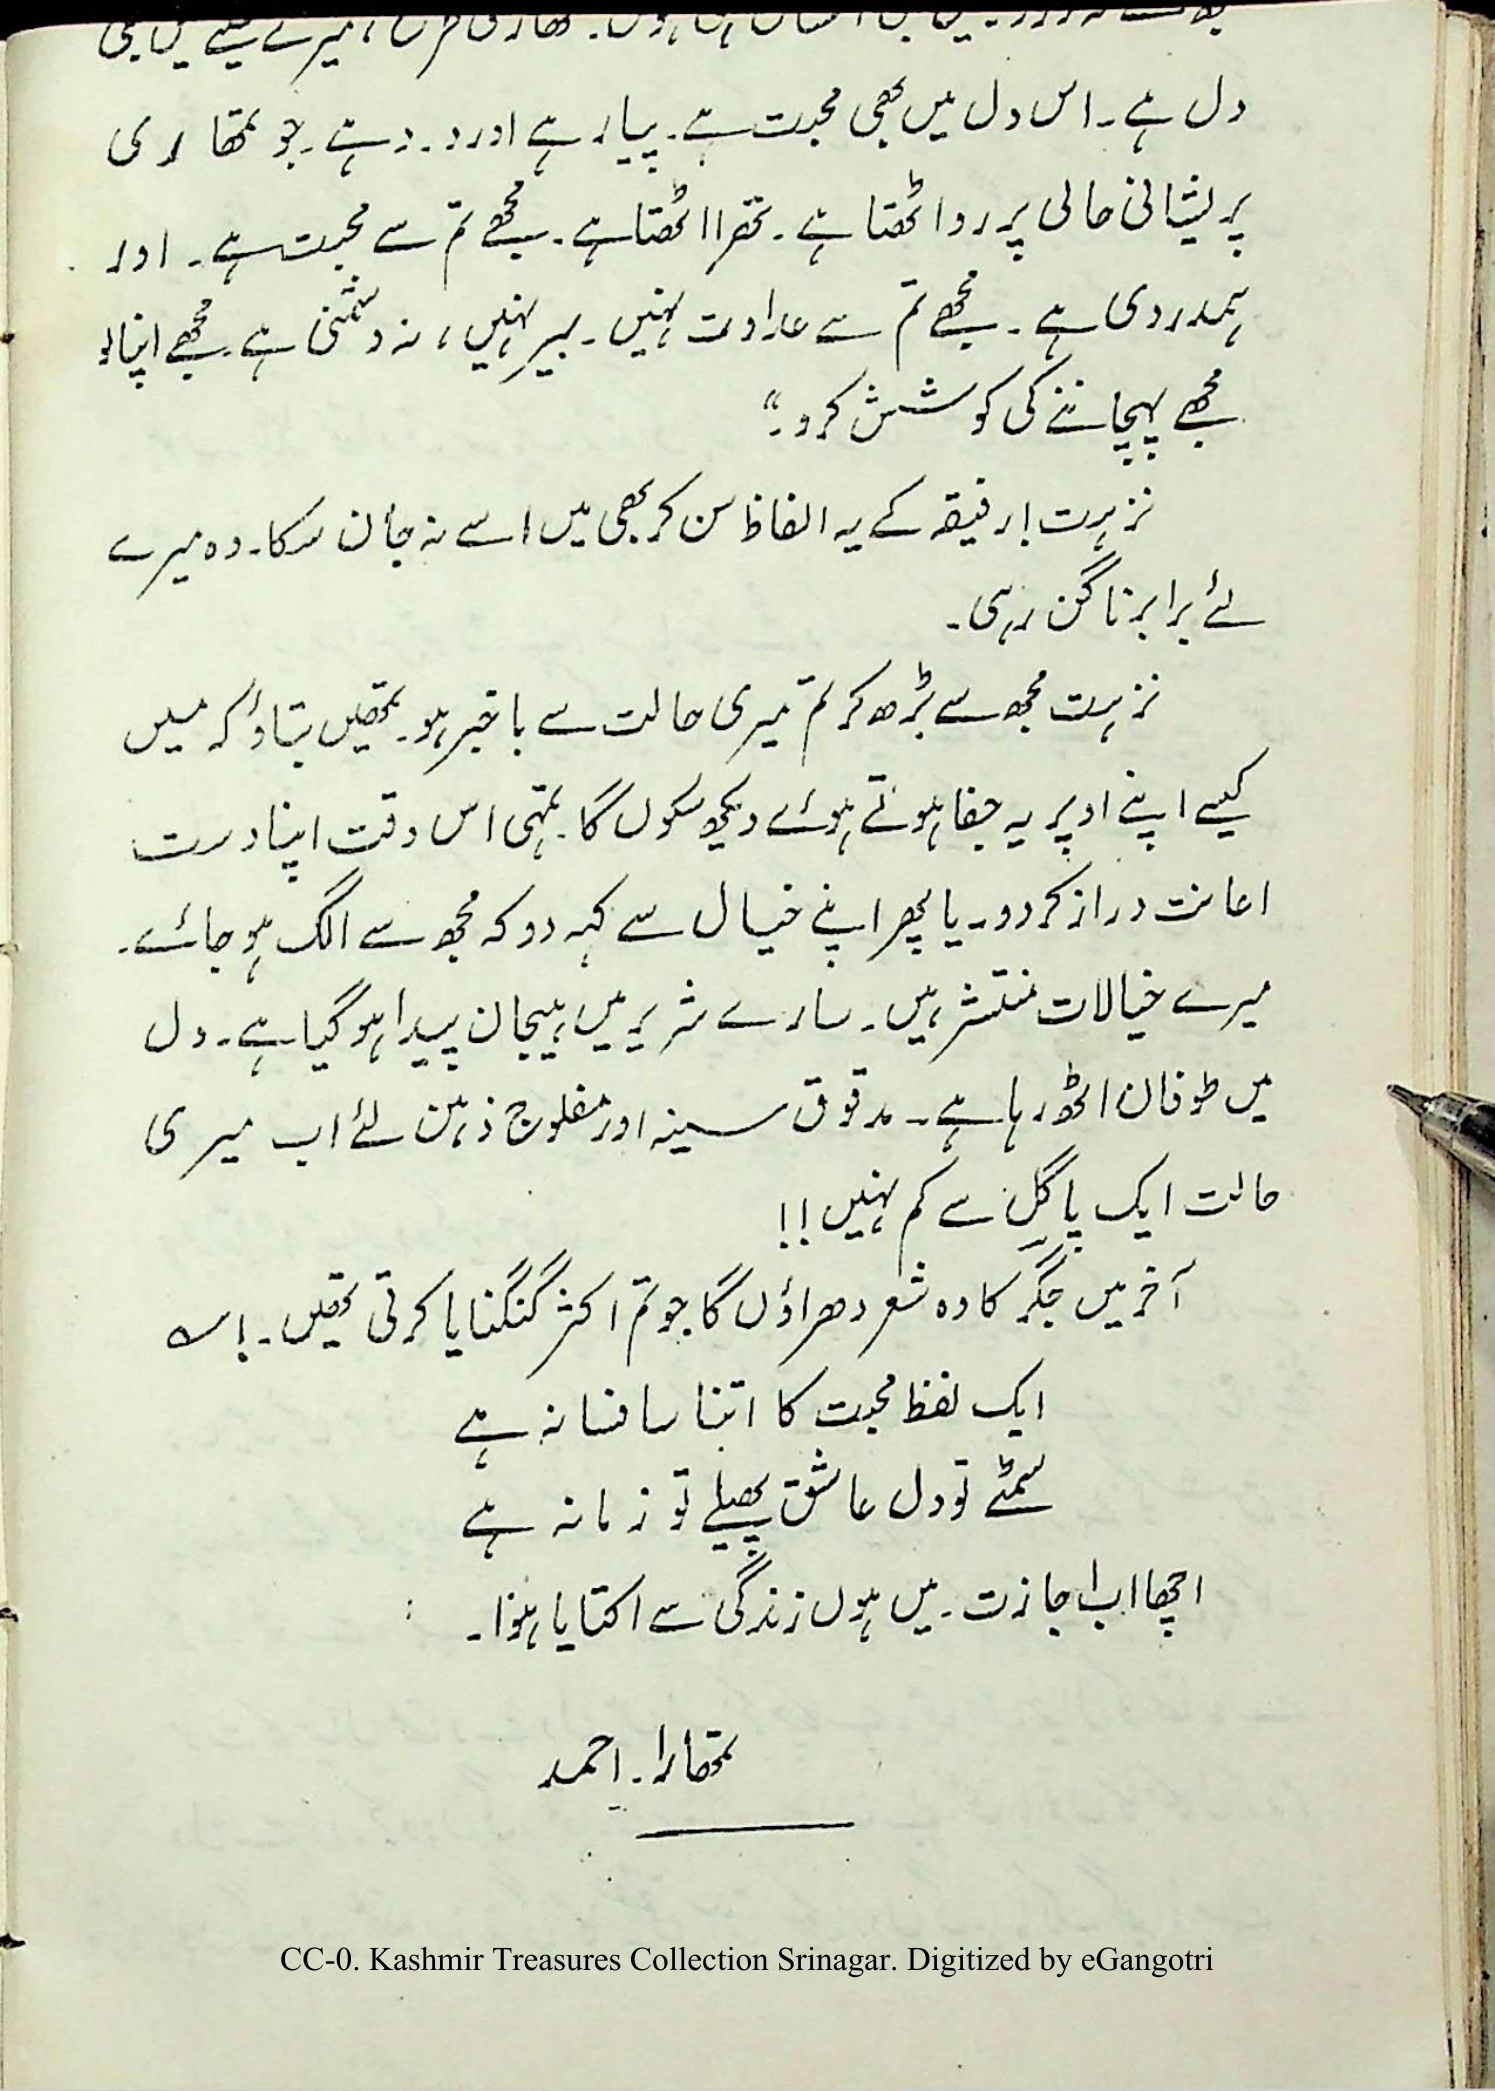 ہوں۔ تمھاری طرح، میرے سینے میں بھی
دل ہے۔ اس دل میں بھی محبت ہے۔ پیار ہے اور درد ہے۔ جو تمھاری
پریشانی حالی پر رو اٹھتا ہے۔ تھرا اٹھتا ہے۔ مجھے تم سے محبت ہے۔ اور
ہمدردی ہے۔ مجھے تم سے عداوت نہیں۔ بیر نہیں، نہ دشمنی ہے۔ مجھے اپنالو
مجھے پہچاننے کی کوشش کرو۔"
نزہت! رفیقہ کے یہ الفاظ سن کر بھی میں اسے نہ جان سکا۔ وہ میرے
لئے برابر ناگن رہی۔
نزہت مجھ سے بڑھ کر تم میری حالت سے باخبر ہو۔ تمھیں بتاؤ کہ میں
کیسے اپنے اوپر یہ جفا ہوتے ہوئے دیکھ سکوں گا۔ تمہی اس وقت اپنا دست
اعانت دراز کردو۔ یا پھر اپنے خیال سے کہہ دو کہ مجھ سے الگ ہو جائے۔
میرے خیالات منتشر ہیں۔ سارے شریر میں ہیجان پیدا ہو گیا ہے۔ دل
میں طوفان اٹھ رہا ہے۔ مدقوق سینہ اور مفلوج ذہن لئے اب میری
حالت ایک پاگل سے کم نہیں!!
آخر میں جگر کا وہ شعر دھراؤں گا جو تم اکثر گنگنایا کرتی تھیں۔!
ایک لفظ محبت کا اتنا سا فسانہ ہے
سمٹے تو دل عاشق پھیلے تو زمانہ ہے
اچھا اب اجازت۔ میں ہوں زندگی سے اکتایا ہوا۔
تمھارا۔ احمد
CC-0. Kashmir Treasures Collection Srinagar. Digitized by eGangotri